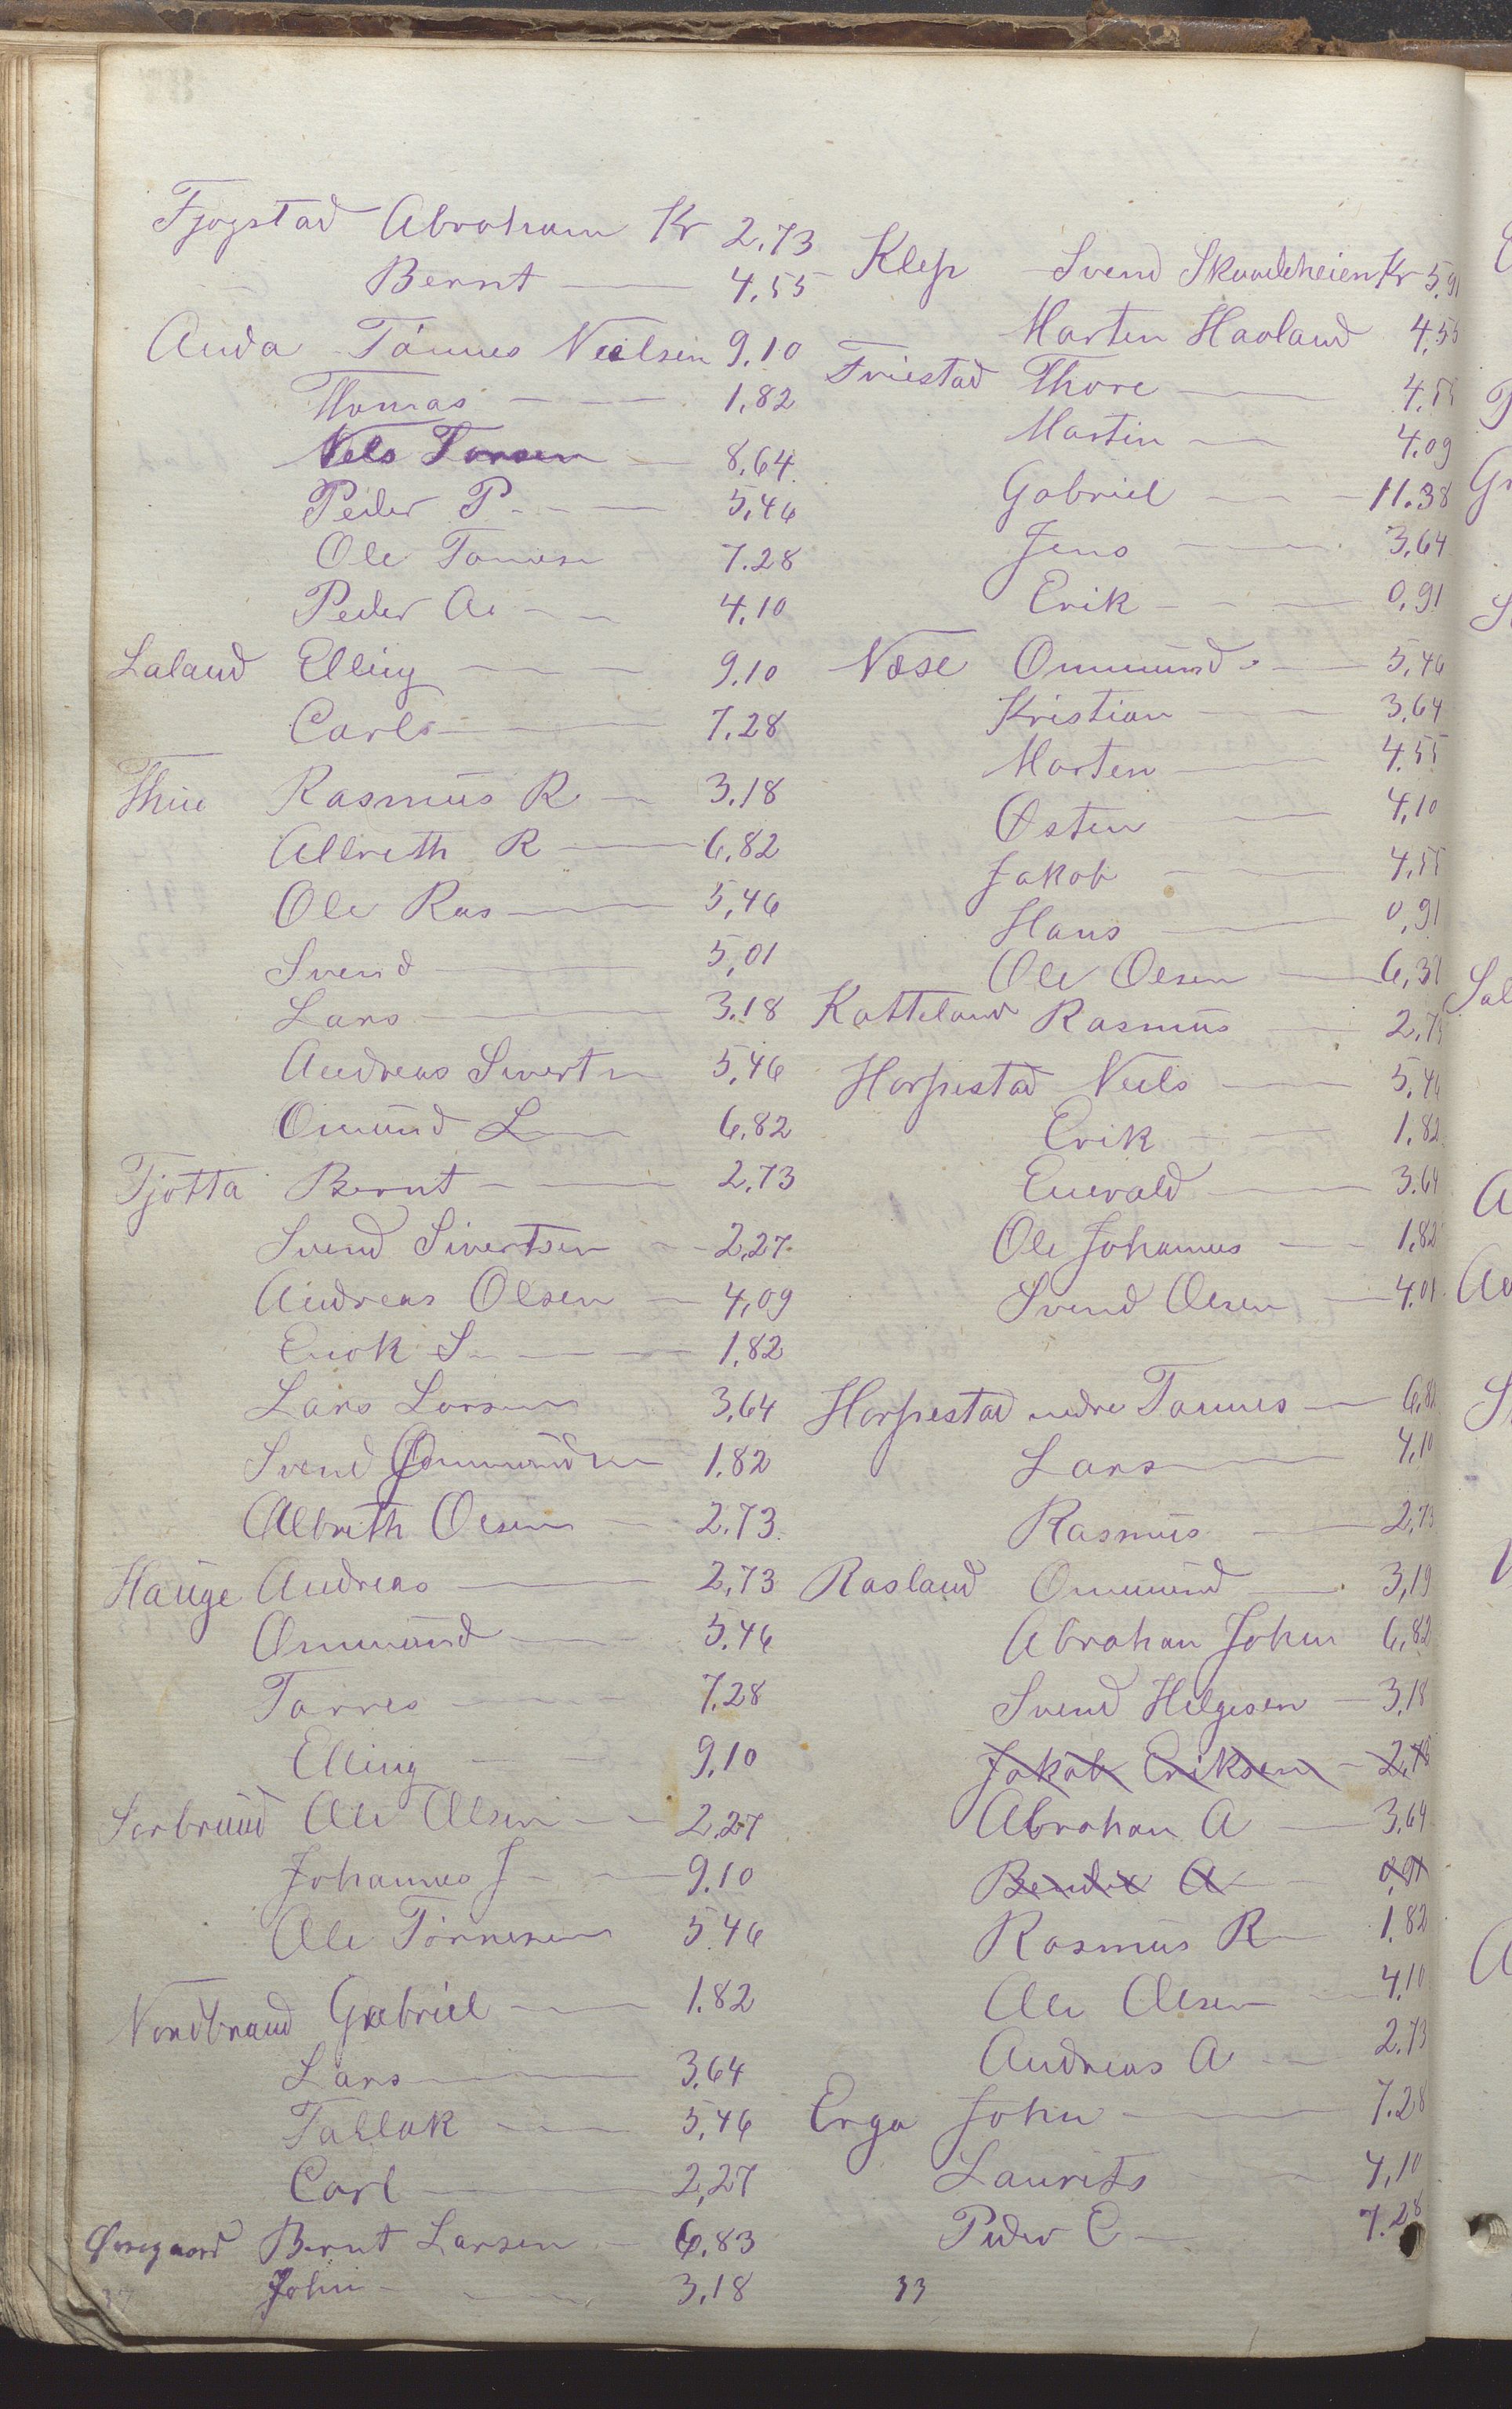 Fjogstad Abraham Kr 2,73
Bernt 4,55
Anda Tönnes Neelsen 9,10
Thomas 1,82
Nels Tonsen 8,64
Peder P. 5,46
Ole Tonnesn 7.28
Peder A. 4,10
Laland Elling 9.10
Carl 7,28
Thue Rasmus R 3,18
Albreth R 6,82
Ole Ras 5,46
Svend 5,01
Lars 3.18
Andreas Sivertn 5,46
Omund L 6,82
Tjøtta Bernt 2,73
Svend Sivertsen 2,27
Andreas Olsen 4,09
Enok S 1,82
Lars Larsen 3,64
Svend Ommundsn 1,82
Albreth Olsen 2,73
Hauge Andreas 2,73
Ommund 5.46
Torres 7.28
Elling 9,10
Sørbraud Ole Olsen 2,27
Johannes J 9.10
Ole Tönnesen 5.46
Nordbraud Gabriel 1.82
Lars 3.64
Tallak 5,46
Carl 2,27
Øvregaard Bernt Larsen 6.83
John 3,18
Klep Svend Kr 5,91
Morten Haaland 4,55
Friestad Thore 4,55
Martin 4,09
Gabriel 11.38
Jens 3,64
Erik 0,91
Næse Ommund 5,46
Kristian 3,64
Morten 4.55
Østen 4,10
Jakob 4,55
Hans 0,91
Ole Olsen 6,37
Katteland Rasmus 2,73
Horpestad Neels 5,46
Erik 1,82
Enevald 3.64
Ole Johannes 1,82
Svend Olsen 4.01
Horpestad nedre Tonnes 6,82
Lars 4,10
Rasmus 2,73
Rosland Ommund 3,19
Abrahan John 6,82
Svend Helgesen 3,18
Jakob Eriksen 2,73
Abrahan A 3,64
Bendix A 0,91
Rasmus R 1,82
Ole Olsen 4,10
Andreas A 2.73
Erga John 7.28
Laurits 4,10
Peder E 7.28
33